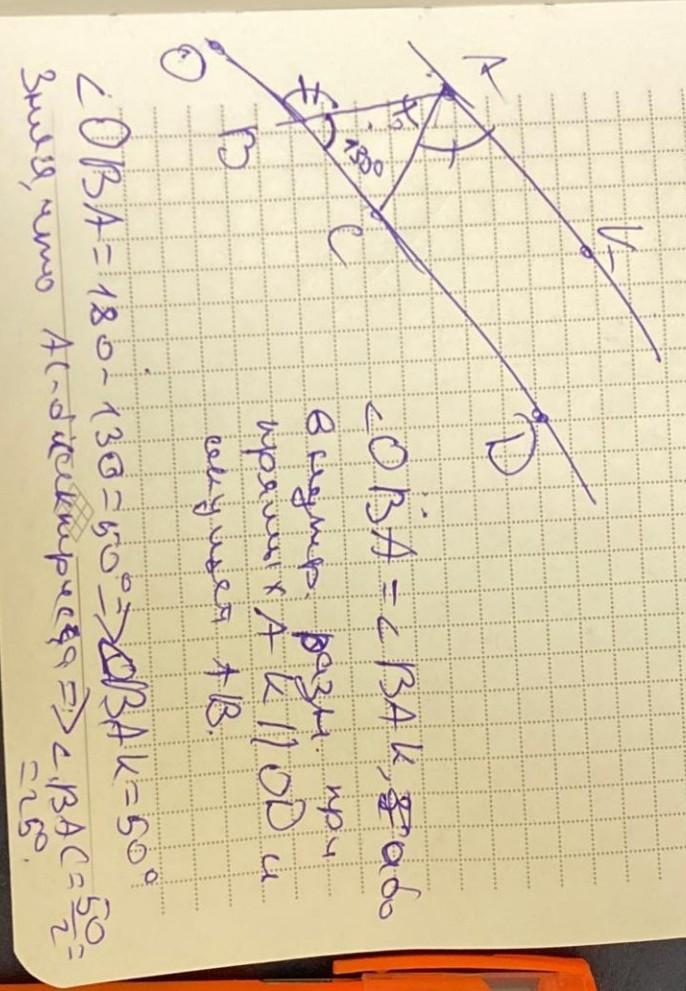 A
K
O
B
130°
C
D
∠OBA = ∠BAK,
внутр. разн. при
прямых AK || OD и
секущая AB.
∠OBA = 180 - 130 = 50° => ∠BAK = 50°
Зная, что AC-биссектриса => ∠BAC = 50/2 =
= 25°.